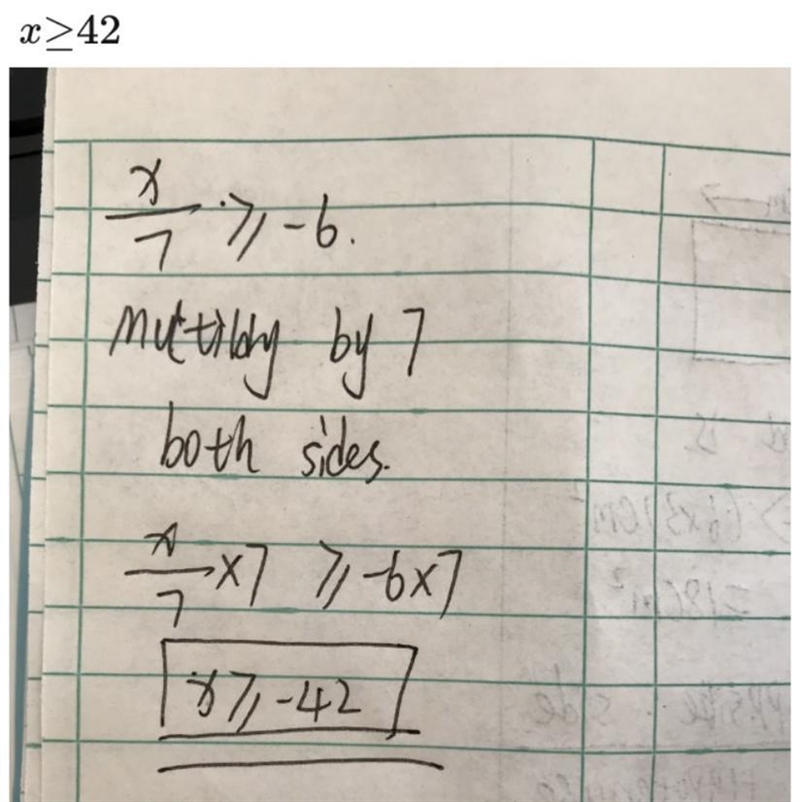 x≥42
x/7 ≥ -6.
Mutilply by 7
both sides.
x/7 ×7 ≥ -6×7
x≥-42